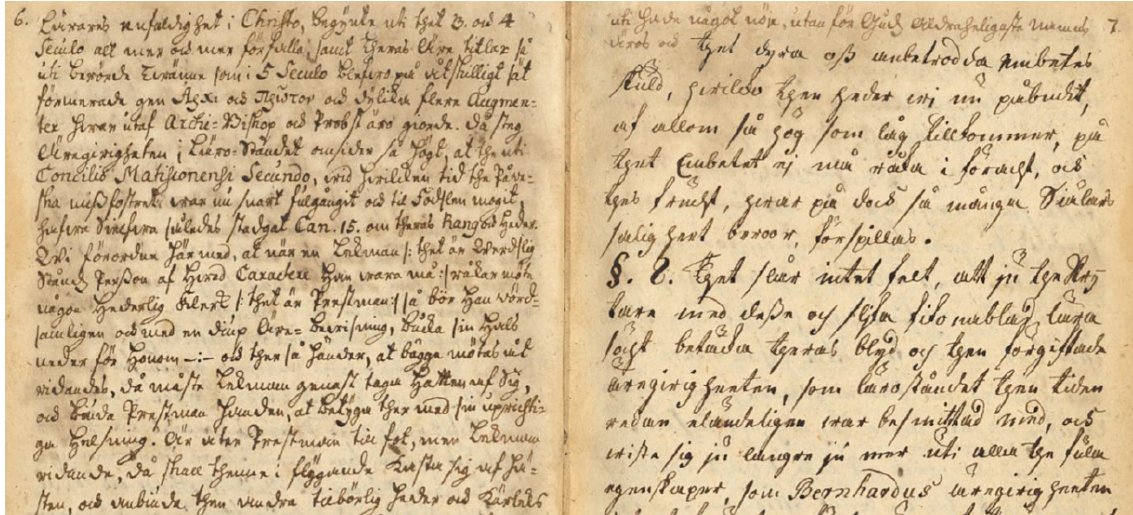 6.
Lärares enfaldighet i Christo, begynte uti thet 3. och 4
Seculo alt mer och mer förfalla, samt theras Äre titlar så
uti berörde som i 5 Seculo blefwo på åtskilligt sät
förmerade gen Αρχι och Πρωτος och dylika flere Augmen-
ter hwar utaf Archi-Biskop och Probst äro giorde. Då steg
Äregirigheten i Läro-Ståndet omsider så högt, at the uti
Concilio Matisionensi Secundo, wid hwilken tid the Påwe-
ska mißfostret war nu snart fulgångit och til Födslen mogit,
således stadgat Can. 15. om theras Rang och Heder.
Wi förordne härmed, at när en Lekman /: thet är Werdslig
Stånds Person af hwad Caractere Han wara må :/ råkar möta
någon Hederlig Clerk /: thet är Prestman :/ så bör Han wörd-
samligen och med en diup Äre-bewisning, böcka sin Hals
neder för Honom -:- och ther så händer, at bägge mötas åk
ridandes, då måste Lekman genast taga Hatten af Sig,
och biuda Prestman Handen, at betyga ther med sin uprichti-
ga Helsning. Är åter Prestman til fot, men Lekman
ridande, då skall thenne i flygande kasta sig af Hä-
sten, och ombinde then andra tilbörlig heder och Kärleks
7.
uti hade något nöje, utan för Guds Aldraheligaste namns
äros och thet dyra oß anbetrodda Embetes
skuld, hwilko then heder wi nu påbudit,
af allom så hög som låg tillkommer, på
thet Embetet ej må råka i föracht, och
thes frucht, hwar på doch så många Siälars
salighet beroor, förspillas.
§. 8. Thet slår intet felt, att ju the
tare med deße och slika fikonablad lära
sökt betäcka theras blyd och then förgiftade
äregirigheeten, som läroståndet then tiden
redan eländeligen war besmittad med, och
wiste sig ju längre ju mer uti alla the fula
egenskaper, som Bernhardus äregirigheeten